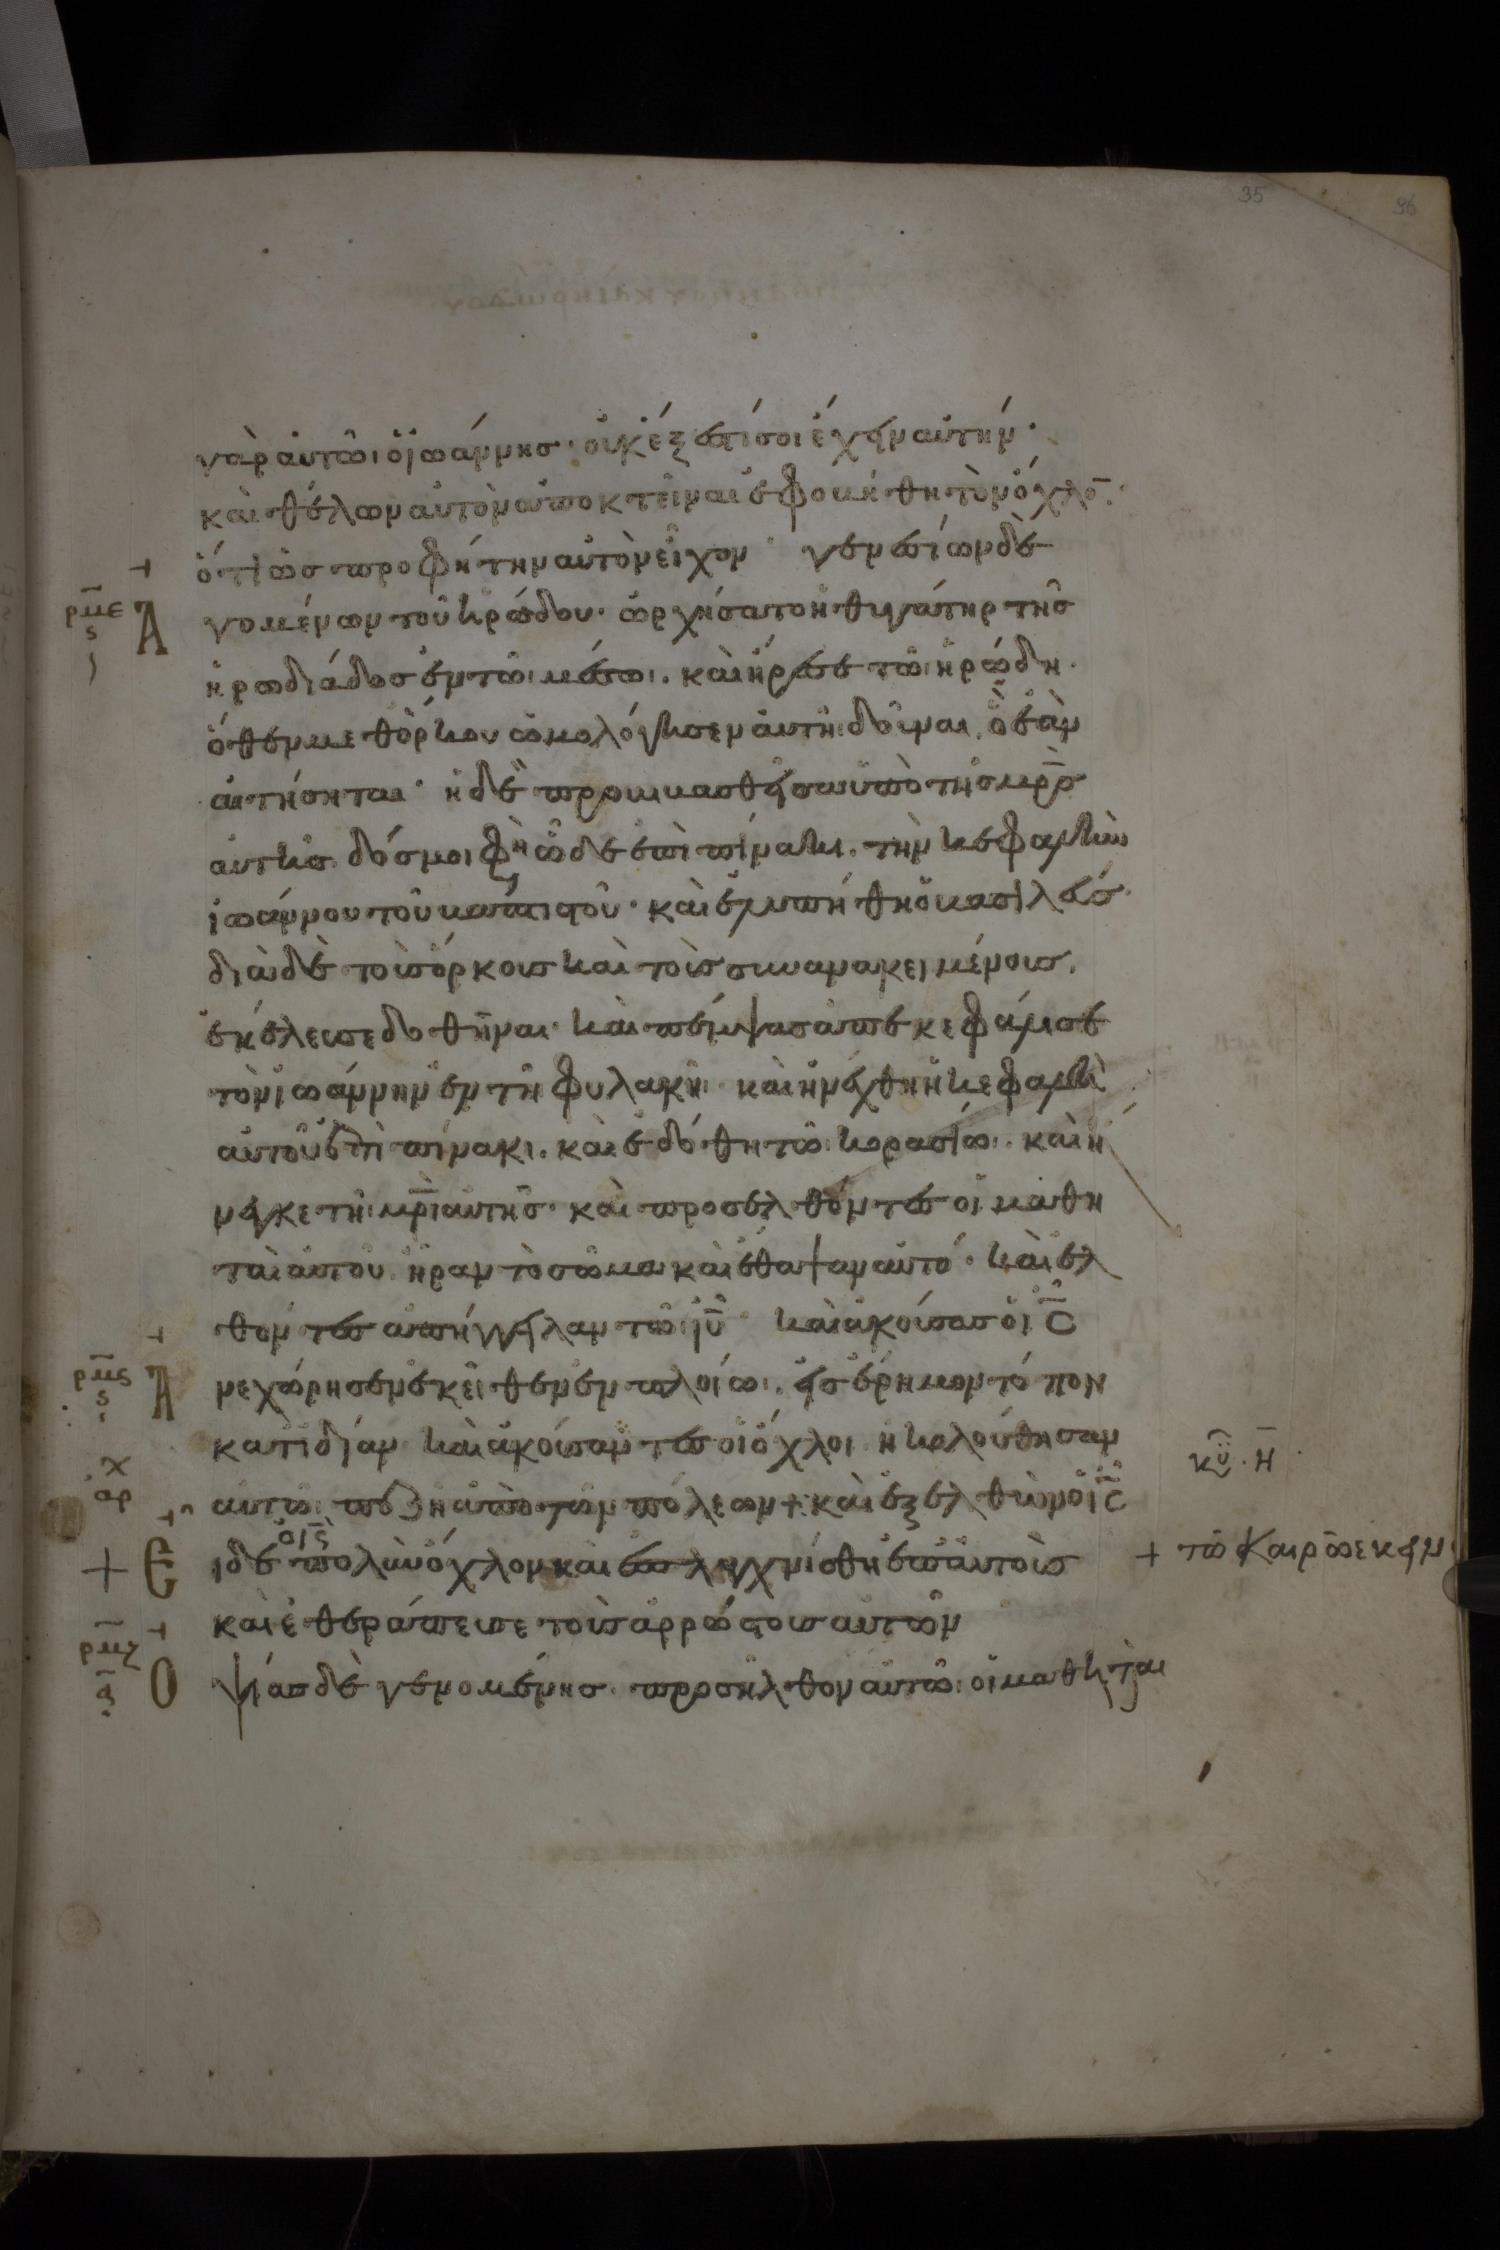 35 96
γὰρ αὐτῶι ὁ ἰωάννης· οὐκ ἔξεστί σοι ἔχειν αὐτήν·
καὶ θέλων αὐτὸν ἀποκτεῖναι ἐφοβήθη τὸν ὄχλο̅·
ὅτι ὡς προφήτην αὐτὸν εἶχον γενεσίων δὲ
ρμε ς Α γομένων τοῦ ἡρώδου· ὠρχήσατο ἡ θυγάτηρ τῆς
ἡρωδιάδος ἐν τῶι μέσωι. καὶ ἤρεσε τῶι ἡρώδη·
ὅθεν μεθ ὅρκου ὡμολόγησεν αὐτῆι δοῦναι, ὃ ἐὰν
αἰτήσηται· ἡ δὲ προβιβασθεῖσα ὑπὸ τῆς μρ̅ς
αὐτῆς δός μοι φη ὧδε ἐπὶ πίνακι. τὴν κεφαλὴν
ἰωάννου τοῦ βαπτιστοῦ· καὶ ἐλυπήθη ὁ βασιλεύς·
διὰ δὲ τοὺς ὅρκους καὶ τοὺς συνανακειμένους,
ἐκέλευσε δοθῆναι· καὶ πέμψας ἀπεκεφάλισε
τὸν ἰωάννην ἐν τῆ φυλακῆι καὶ ἠνέχθη ἡ κεφαλὴ
αὐτοῦ ἐπὶ πίνακι. καὶ ἐδόθη τῶ κορασίωι. καὶ ἤ
νεγκε τῆι μρ̅ι αὐτῆς· καὶ προσελθόντες οἱ μαθη
ταὶ αὐτοῦ ἦραν τὸ σῶμα καὶ ἔθαψαν αὐτό· καὶ ἐλ
θόντες ἀπήγγειλαν τῶ ιυ̅ καὶ ἀκούσας ὁ ις̅
ρμς ς Α νεχώρησεν ἐκεῖθεν ἐν πλοίωι. εἰς ἔρημον τόπον
κατιδίαν καὶ ἀκούσαντες οἱ ὄχλοι ἠκολούθησαν
αρχ αὐτῶι πεζῆ ἀπὸ τῶν πόλεων + καὶ ἐξελθὼν ὁ ις̅
κυ· η
+ Ε ἶδε πολὺν ὄχλον καὶ ἐσπλαγχνίσθη ἐπ αὐτοῖς
ὁ ις̅
+ τῶ καιρῶ ἐκείν
καὶ ἐθεράπευσε τοὺς ἀρρώστους αὐτῶν
ρμζ Ο ψίας δὲ γενομένης προσῆλθον αὐτῶι οἱ μαθηταὶ